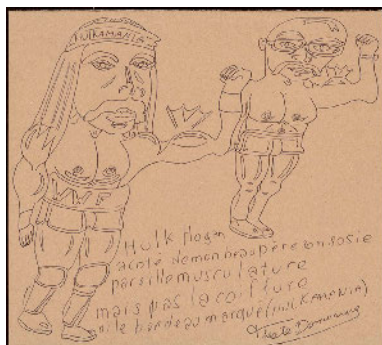 HULKAMANIA
WF
Hulk Hogan
a coté de mon beau père son sosie
pareille musculature
mais pas la coiffure
ni le bandeau marqué (HULKAMANIA)